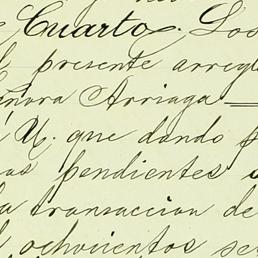 Cuarto. Los
presente arregl
eñora Arriaga
N. que dando
pendientes
a transaccion de
ochocientos se